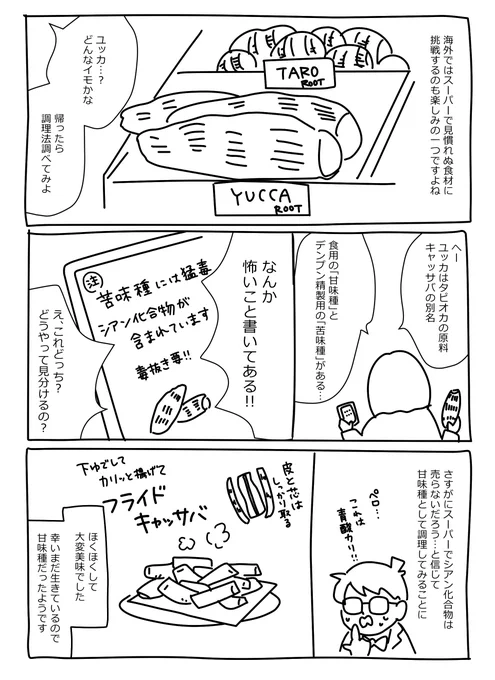 海外ではスーパーで見慣れぬ食材に
挑戦するのも楽しみの一つですよね
TARO
ROOT
YUCCA
ROOT
ユッカ…?
どんなイモかな
帰ったら
調理法調べてみよ
へー
ユッカはタピオカの原料
キャッサバの別名
食用の「甘味種」と
デンプン精製用の「苦味種」がある…
なんか
怖いこと書いてある!!
注
苦味種には猛毒
シアン化合物が
含まれています
毒抜き要!!
え、これどっち?
どうやって見分けるの?
さすがにスーパーでシアン化合物は
売らないだろう…と信じて
甘味種として調理してみることに
ペロ…
これは
青酸カリ!!
皮と芯は
しっかり取る
下ゆでして
カリッと揚げて
フライド
キャッサバ
ほくほくして
大変美味でした
幸いまだ生きているので
甘味種だったようです